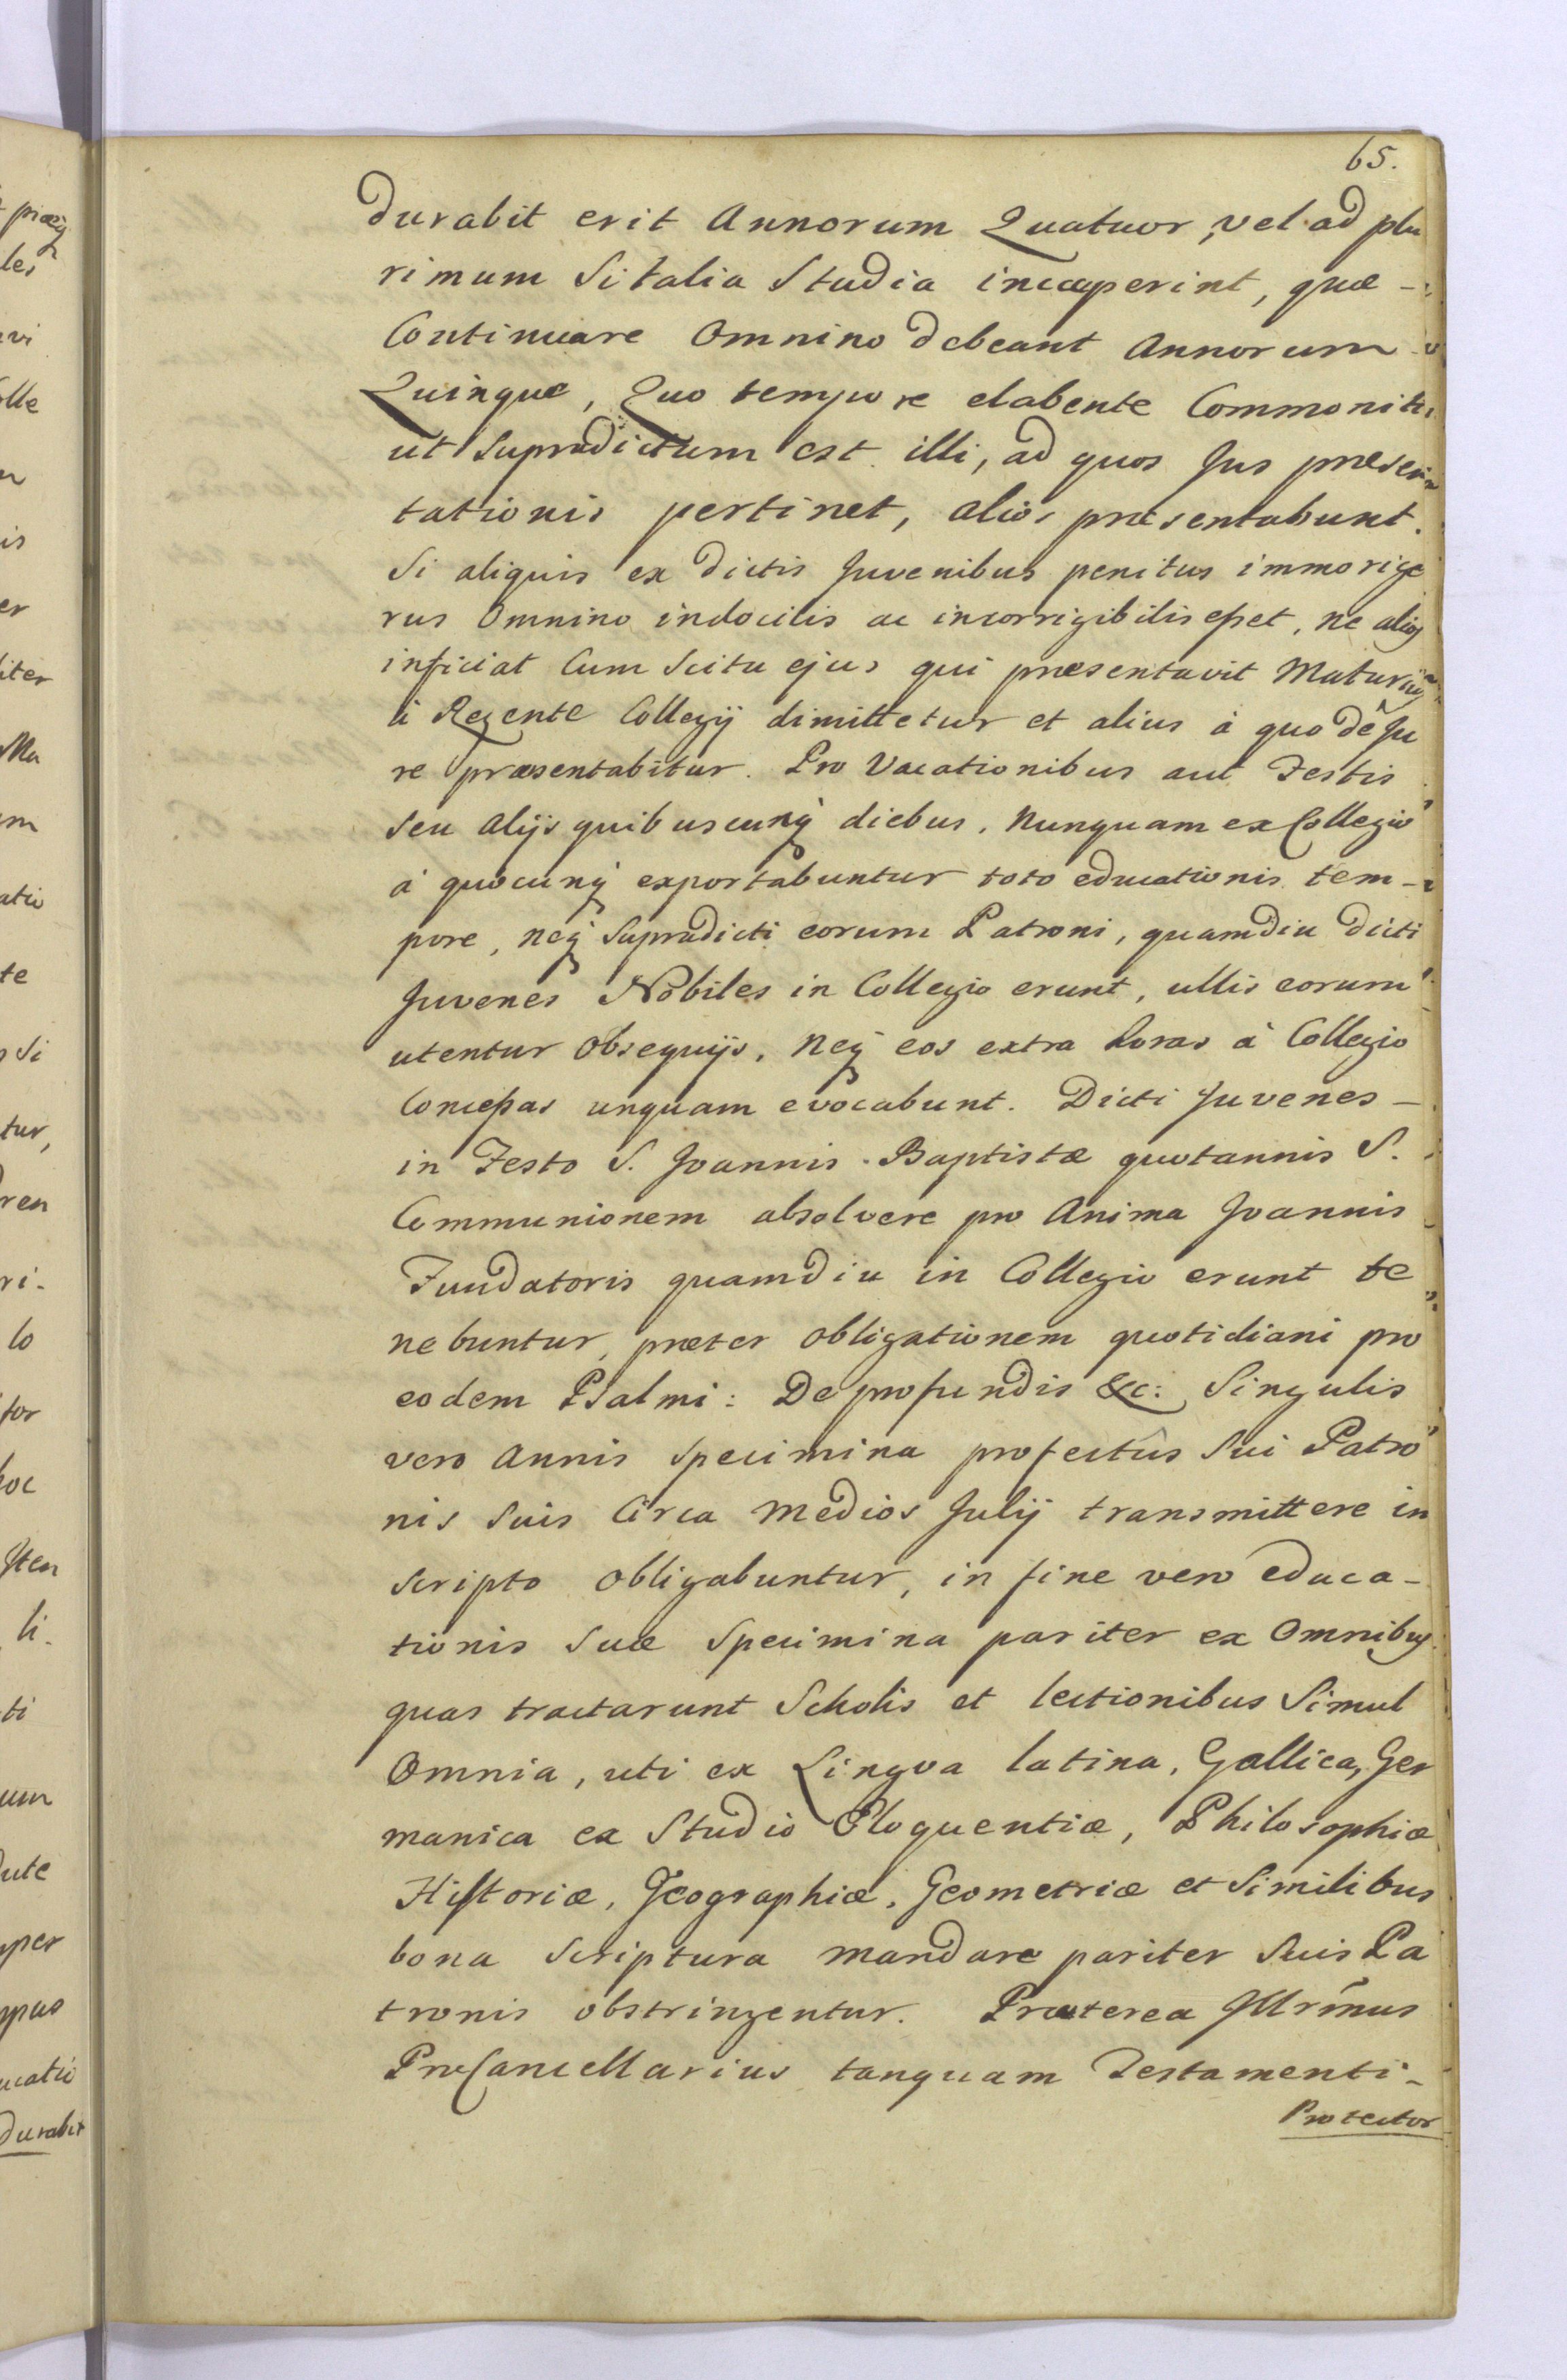 65.
durabit erit Annorum Quatuor, vel ad plu
rimum Si talia Studia incæperint, quæ -
Continuare Omnino debeant Annorum
Quinque, Quo tempore elabente Commoniti
ut Supradictum est illi, ad quos Jus præsen
tationis pertinet, alios præsentabunt.
Si aliquis ex dictis Juvenibus penitus immorige
rus Omnino indocilis ac incorrigibilis esset, ne alios
inficiat Cum Scitu ejus qui præsentavit Maturius
à Regente Collegij dimittetur et alius à quo dê Ju
re præsentabitur. Pro Vacationibus aut Festis
seu alijs quibuscunq diebus, Nunquam ex Collegio
à quocunq exportabuntur toto educationis tem-
pore, neq Supradicti eorum Patroni, quamdiu dicti
Juvenes Nobiles in Collegio erunt, ullis eorum
utentur Obsequijs, Neq eos extra horas à Collegio
Concessas unquam evocabunt. Dicti Juvenes -
in Festo S. Joannis Baptistæ quotannis S.
Communionem absolvere pro Anima Joannis
Fundatoris quamdiu in Collegio erunt te
nebuntur, præter obligationem quotidiani pro
eodem Psalmi: De profundis &c: Singulis
vero Annis Specimina profectûs Sui Patro
nis Suis Circa Medios Julij transmittere in
scripto obligabuntur, in fine vero educa-
tionis Suæ Specimina pariter ex Omnibus
quas tractarunt Scholis et lectionibus Simul
Omnia, uti ex Lingva latina, Gallica, Ger
manica ex Studio Eloquentiæ, Philosophiæ
Historiæ, Geographiæ, Geometriæ et Similibus
bona Scriptura mandare pariter Suis Pa
tronis obstringentur. Præterea Jllrm̃us
ProCancellarius tanquam Testamenti-
Protector